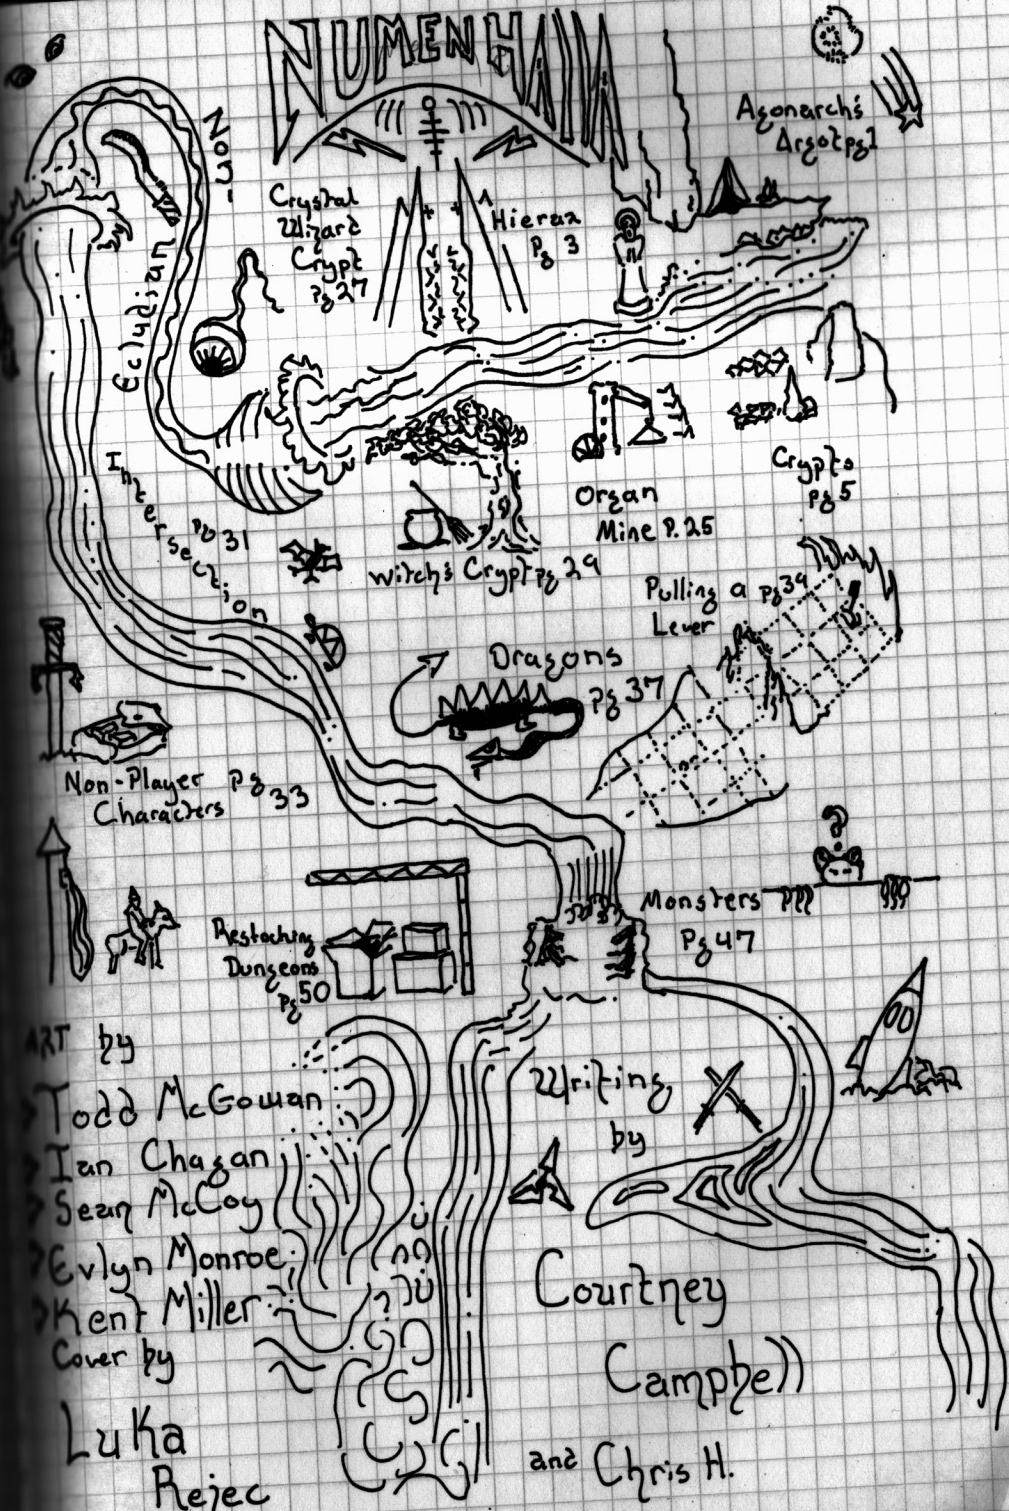 NUMENHALLA
Agonarch's
Argot pg 1
Crystal
Wizard
Crypt
pg 27
Hierax
Pg 3
Non-
Ecludian
Intersection
pg 31
Crypts
pg 5
Organ
Mine P. 25
Witch's Crypt pg 29
Pulling a pg 39
Lever
Dragons
pg 37
Non-Player pg 33
Characters
?
Monsters
Pg 47
Restocking
Dungeons
pg 50
ART by
Todd McGowan
Ian Chagan
Sean McCoy
Evlyn Monroe
Kent Miller
Cover by
Luka
Rejec
Writing
by
Courtney
Campbell
and Chris H.